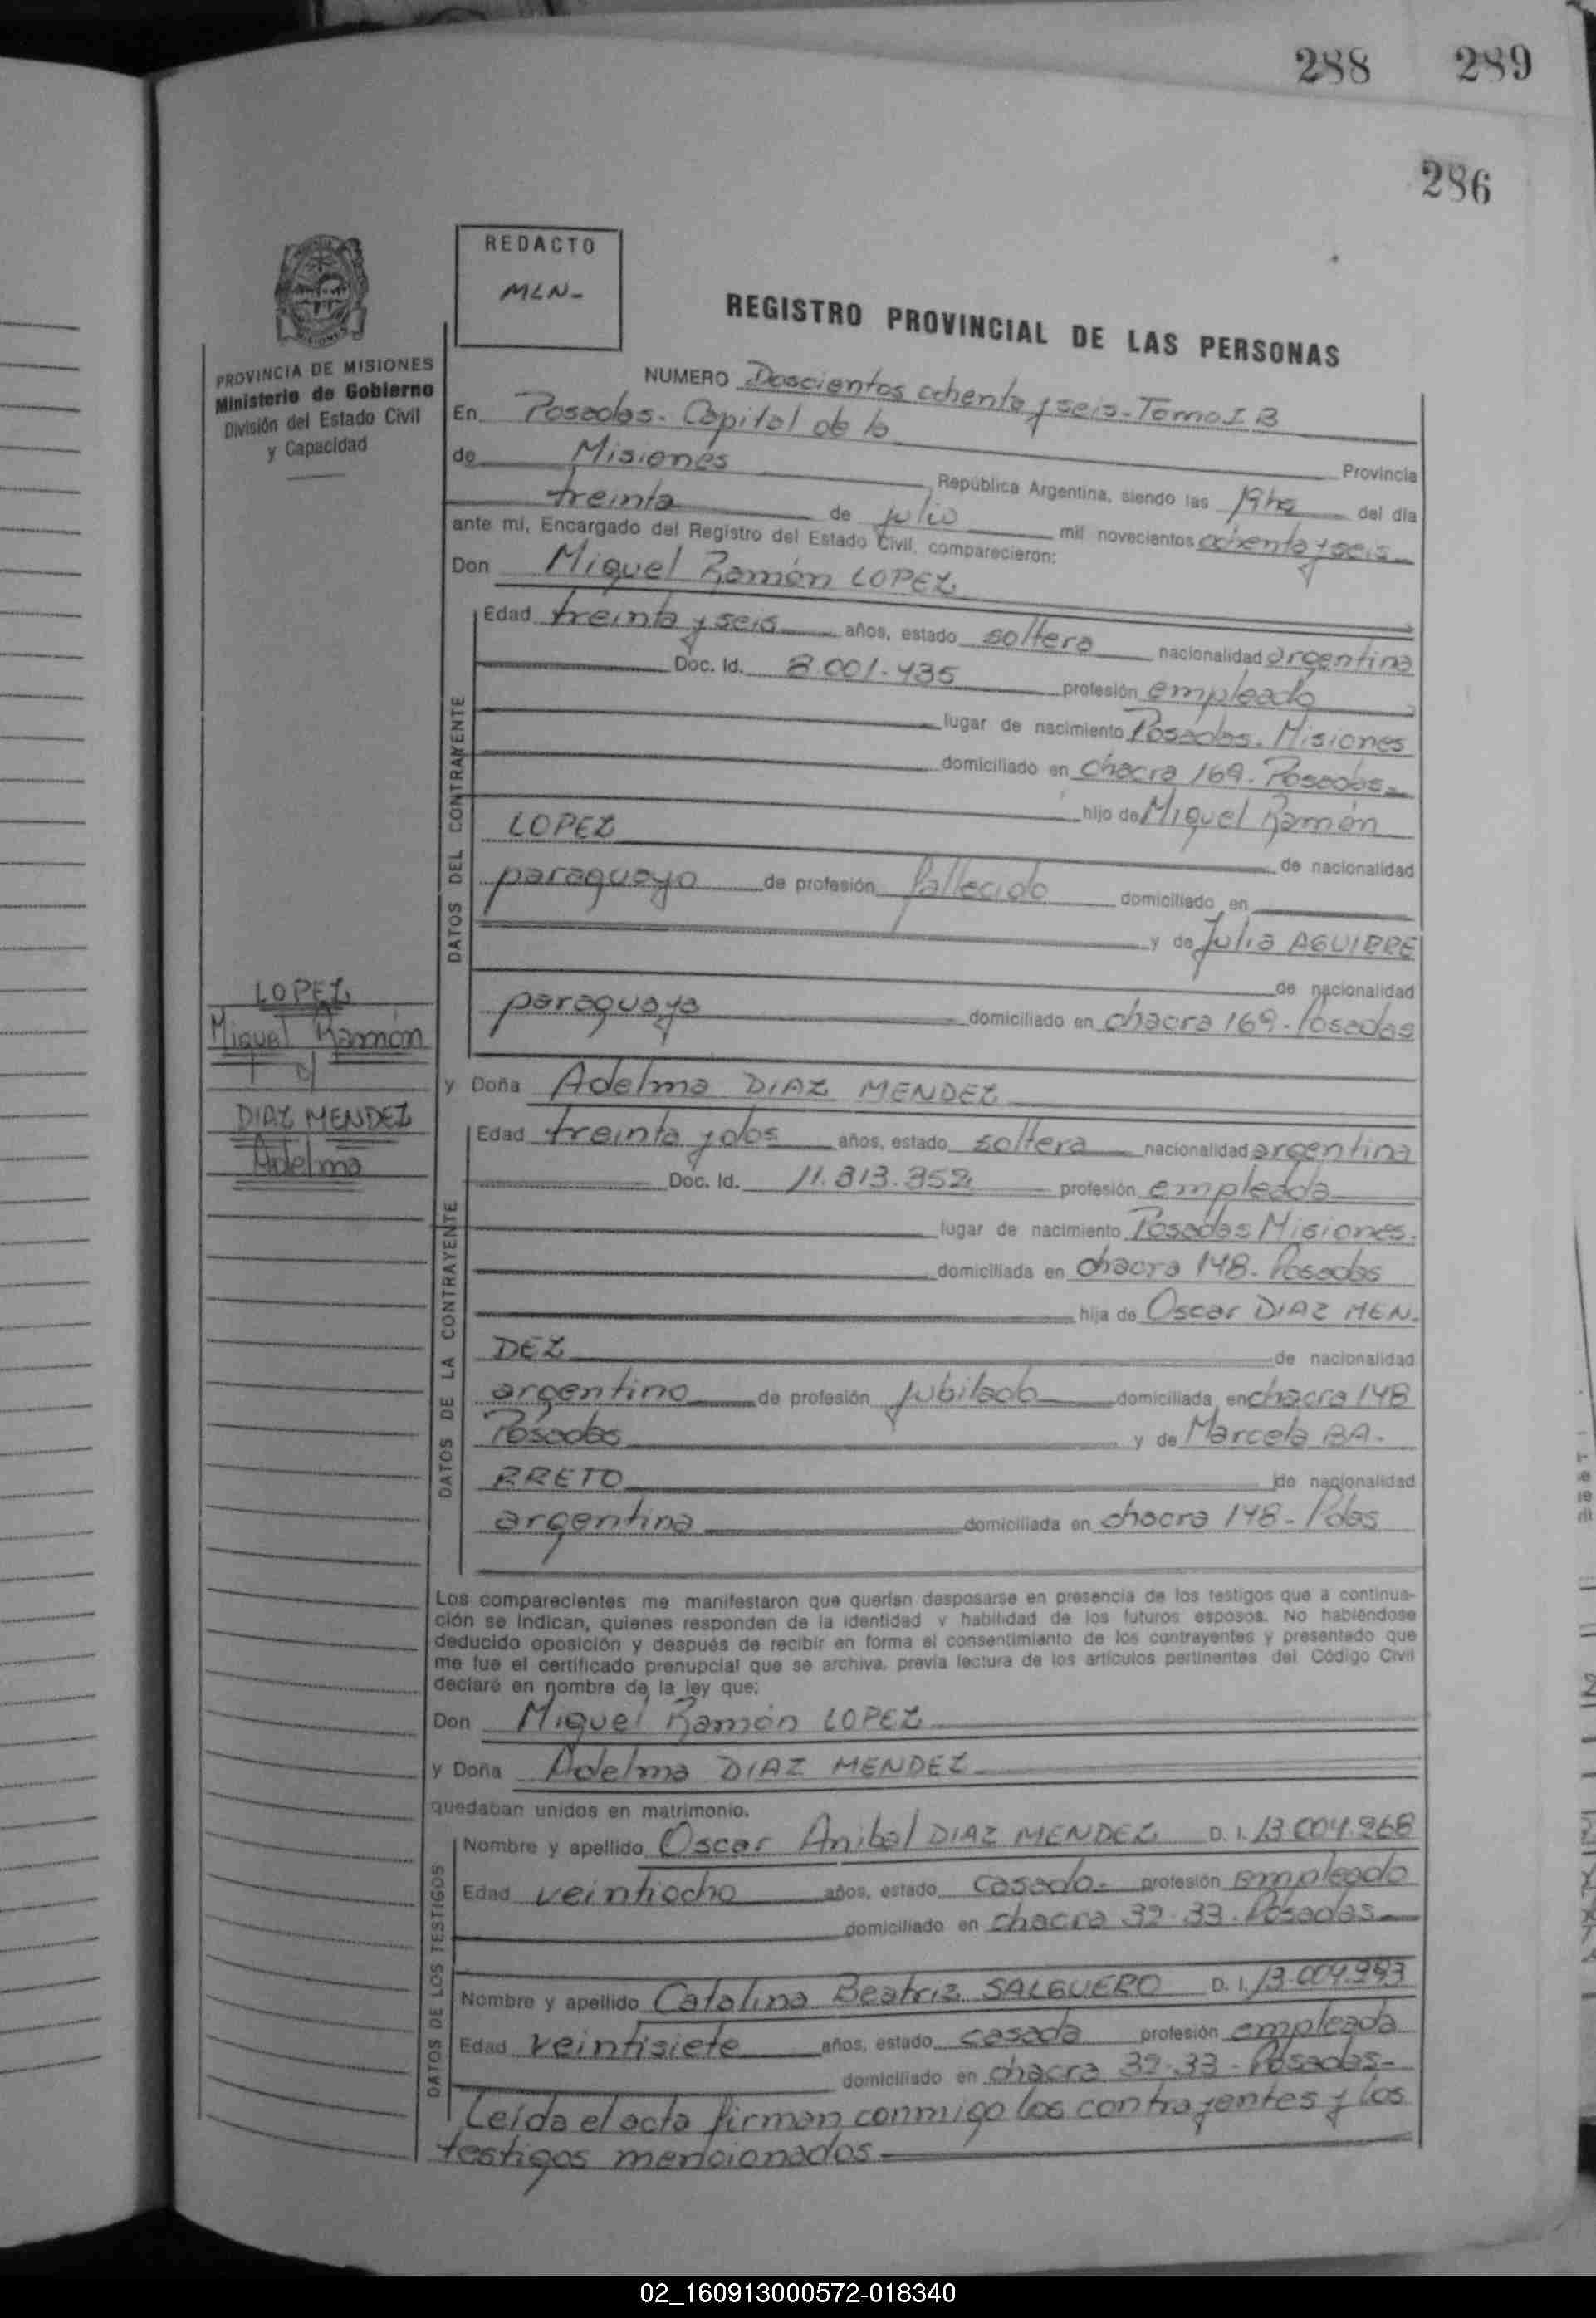 288 289
286
REDACTO
MLN-
REGISTRO PROVINCIAL DE LAS PERSONAS
PROVINCIA DE MISIONES
Ministerio de Gobierno
División del Estado Civil
y Capacidad
NUMERO Doscientos ochenta y seis - Tomo I B
En Posadas - Capital de la Provincia
de Misiones República Argentina, siendo las 19hs del día
treinta de julio mil novecientos ochenta y seis
ante mí, Encargado del Registro del Estado Civil, comparecieron:
Don Miguel Ramón LOPEZ
DATOS DEL CONTRAYENTE
Edad treinta y seis años, estado soltero nacionalidad argentina
Doc. Id. 8.001.435 profesión empleado
lugar de nacimiento Posadas. Misiones
domiciliado en chacra 169. Posadas
hijo de Miguel Ramón
LOPEZ de nacionalidad
paraguayo de profesión fallecido domiciliado en
y de Julia AGUIRRE
de nacionalidad
paraguaya domiciliado en chacra 169 - Posadas
LOPEZ
Miguel Ramón
c/
DIAZ MENDEZ
Adelma
y Doña Adelma DIAZ MENDEZ
DATOS DE LA CONTRAYENTE
Edad treinta y dos años, estado soltera nacionalidad argentina
Doc. Id. 11.313.352 profesión empleada
lugar de nacimiento Posadas Misiones.
domiciliada en chacra 148 - Posadas
hija de Oscar DIAZ MEN-
DEZ de nacionalidad
argentino de profesión jubilado domiciliada en chacra 148
Posadas y de Marcela BA-
RRETO de nacionalidad
argentina domiciliada en chacra 148 - Pdas
Los comparecientes me manifestaron que querían desposarse en presencia de los testigos que a continua-
ción se indican, quienes responden de la identidad y habilidad de los futuros esposos. No habiéndose
deducido oposición y después de recibir en forma el consentimiento de los contrayentes y presentado que
me fue el certificado prenupcial que se archiva, previa lectura de los artículos pertinentes del Código Civil
declaré en nombre de la ley que:
Don Miguel Ramón LOPEZ
y Doña Adelma DIAZ MENDEZ
quedaban unidos en matrimonio.
DATOS DE LOS TESTIGOS
Nombre y apellido Oscar Anibal DIAZ MENDEZ D. I. 13.004.968
Edad veintiocho años, estado casado - profesión empleado
domiciliado en chacra 32-33 - Posadas
Nombre y apellido Catalina Beatriz SALGUERO D. I. 13.004.993
Edad veintisiete años, estado casada profesión empleada
domiciliado en chacra 32-33 - Posadas-
Leída el acta firman conmigo los contrayentes y los
testigos mencionados
02_160913000572-018340